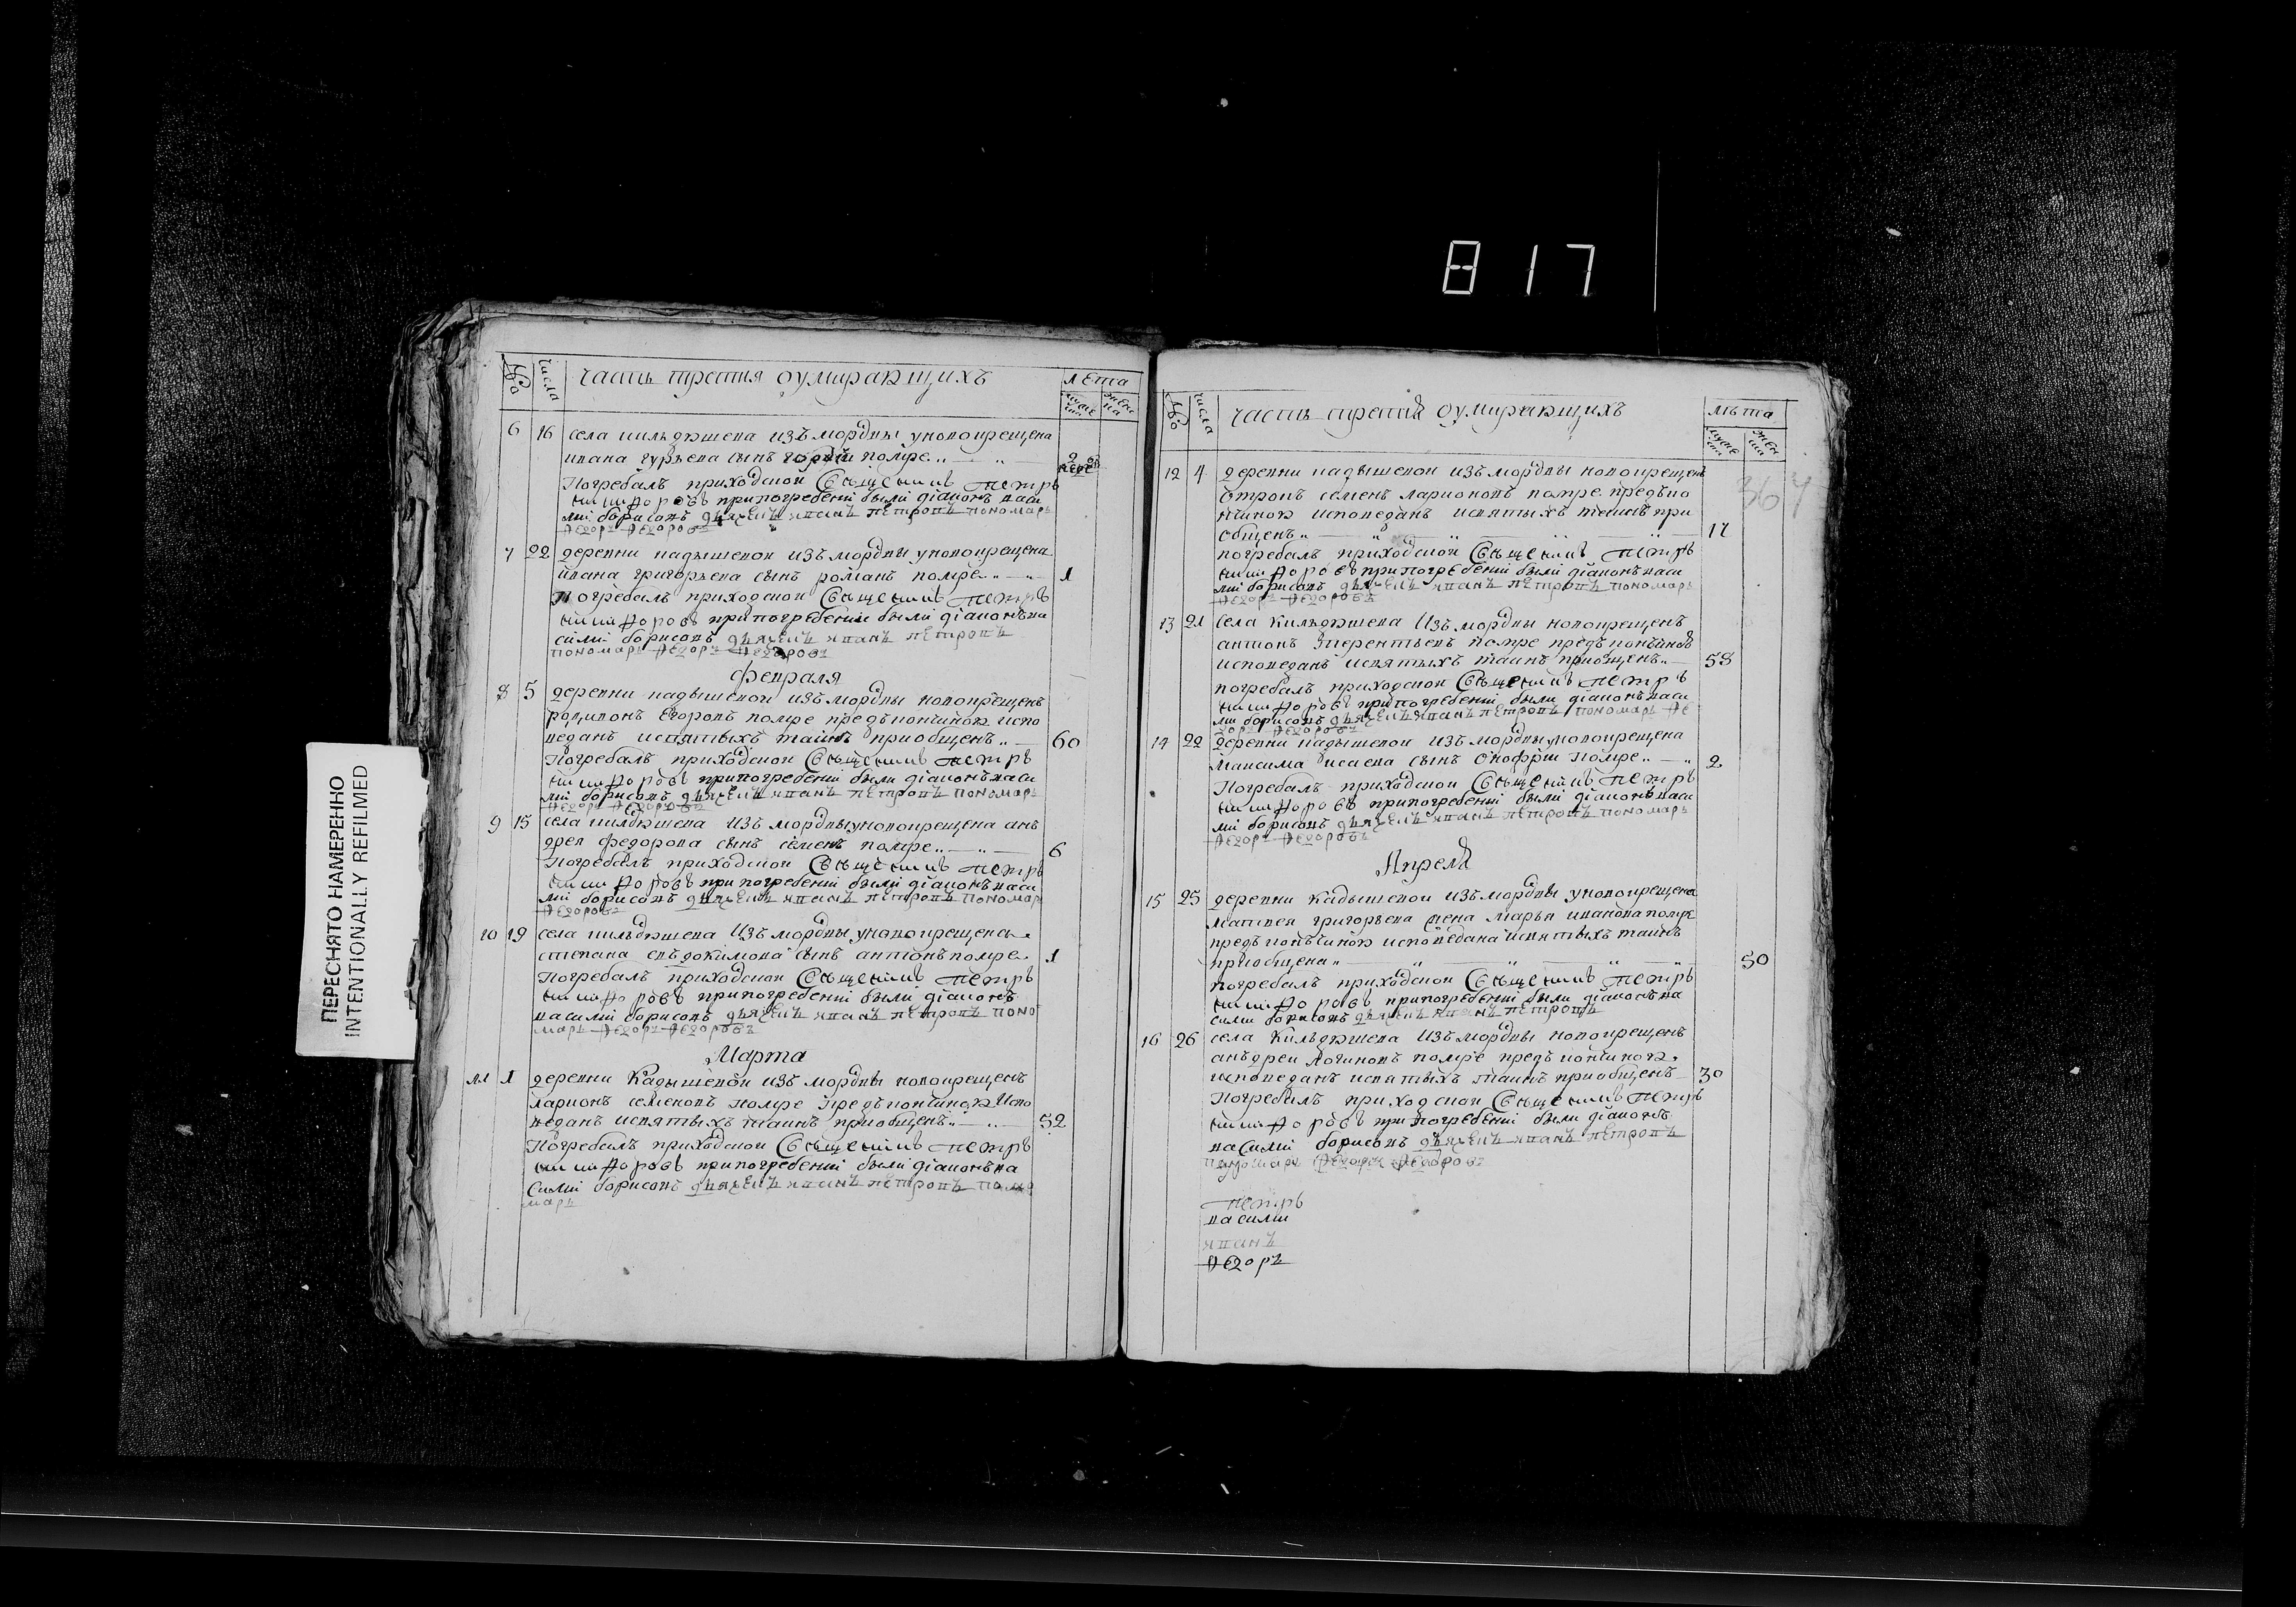 817
ПЕРЕСНЯТО НАМЕРЕННО
INTENTIONALLY REFILMED
№ числа часть третия оумирающихъ лета
муже женска
6 16 села кильдюшева изъ мордвы у новокрещена
ивана гурьева сынъ помре 2
Погребалъ приходскои Священникъ Петръ
никифоровъ при погребении были дiаконъ васи
лiй борисовъ дьячекъ иванъ петровъ пономарь
Федоръ Федоровъ
7 22 деревни кадышевои изъ мордвы у новокрещена
ивана григорьева сынъ романъ помре 1
Погребалъ приходскои Священникъ Петръ
никифоровъ при погребении были дiаконъ ва
силiй борисовъ дьячекъ иванъ петровъ
пономарь Федоръ Федоровъ
Февраля
8 5 деревни кадышевои изъ мордвы новокрещенъ
родионъ Егоровъ помре предъ кончиною испо
веданъ и святыхъ таинъ приобщенъ 60
Погребалъ приходскои Священникъ Петръ
никифоровъ при погребенiи были дiаконъ васи
лiй борисовъ дьячекъ иванъ петровъ пономарь
Федоръ Федоровъ
9 15 села килдюшева изъ мордвы у новокрещена анъ
дрея федорова сынъ семенъ помре 6
Погребалъ приходскои Священникъ Петръ
никифоровъ при погребенiи были дiаконъ васи
лiй борисовъ дьячекъ иванъ петровъ пономарь
Федоровъ
10 19 села кильдюшева изъ мордвы у новокрещена
степана евъдокимова сынъ антонъ помре 1
Погребалъ приходскои Священникъ Петръ
никифоровъ при погребенiи были дiаконъ
василiй борисовъ дьячекъ иванъ петровъ поно
марь Федоръ Федоровъ
Марта
11 1 деревни Кадышевои изъ мордвы новокрещенъ
ларионъ семеновъ помре предъ кончиною испо
веданъ и святыхъ таинъ приобщенъ 52
Погребалъ приходскои Священникъ Петръ
никифоровъ при погребенiи были дiаконъ ва
силiй борисовъ дьячекъ иванъ петровъ поно
марь
№ числа часть третия оумирающихъ лѣта
муже женска
367
12 4 деревни кадышевои изъ мордвы новокрещенъ
отрокъ семенъ ларионовъ помре предъ ко
нчиною исповеданъ и святыхъ таинъ при
общенъ 17
погребалъ приходскои Священникъ Петръ
никифоровъ при погребенiи были дiаконъ васи
лiй борисовъ дьячекъ иванъ петровъ пономарь
Федоръ Федоровъ
13 21 села Кильдюшева изъ мордвы новокрещенъ
антонъ терентьевъ помре предъ кончиною
исповеданъ и святыхъ таинъ приобщенъ 58
погребалъ приходскои Священникъ Петръ
никифоровъ при погребенiи были дiаконъ васи
лiй борисовъ дьячекъ иванъ петровъ пономарь Фе
доръ Федоровъ
14 22 деревни кадышевои изъ мордвы у новокрещена
максима исаева сынъ онофрiй помре 2
Погребалъ приходскои Священникъ Петръ
никифоровъ при погребенiи были дiаконъ васи
лiй борисовъ дьячекъ иванъ петровъ пономарь
Федоръ Федоровъ
Апреля
15 25 деревни Кадышевои изъ мордвы у новокрещена
матвея григорьева жена марья иванова помре
предъ конъчиною исповедана и святыхъ таинъ
приобщена 50
погребалъ приходскои Священникъ Петръ
никифоровъ при погребенiи были дiаконъ ва
силiй борисовъ дьячекъ иванъ петровъ
16 26 села Кильдюшева изъ мордвы новокрещенъ
анъдреи логиновъ помре предъ кончиною
исповеданъ и святыхъ таинъ приобщенъ 30
Погребалъ приходскои Священникъ Петръ
никифоровъ при погребенiи были дiаконъ
василiй борисовъ дьячекъ иванъ петровъ
пономарь Федоръ Федоровъ
Петръ
василiй
иванъ
Федоръ